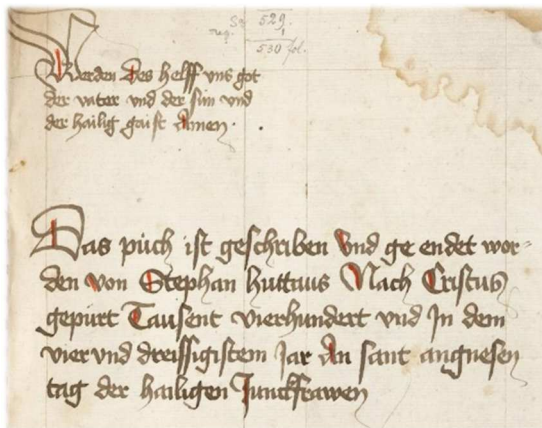 529.
1
530 fol.
Werden Des helff vns got
der vater vnd der sun vnd
der hailig gaist Amen.
Das puch ist geschriben Vnd ge endet wor-
den von Stephan huttaus Nach Cristus
gepurt Tausent vierhundert vnd Jn dem
vier vnd dreissigistem Jar An sant angnesen
tag der hailigen Junckfrawen